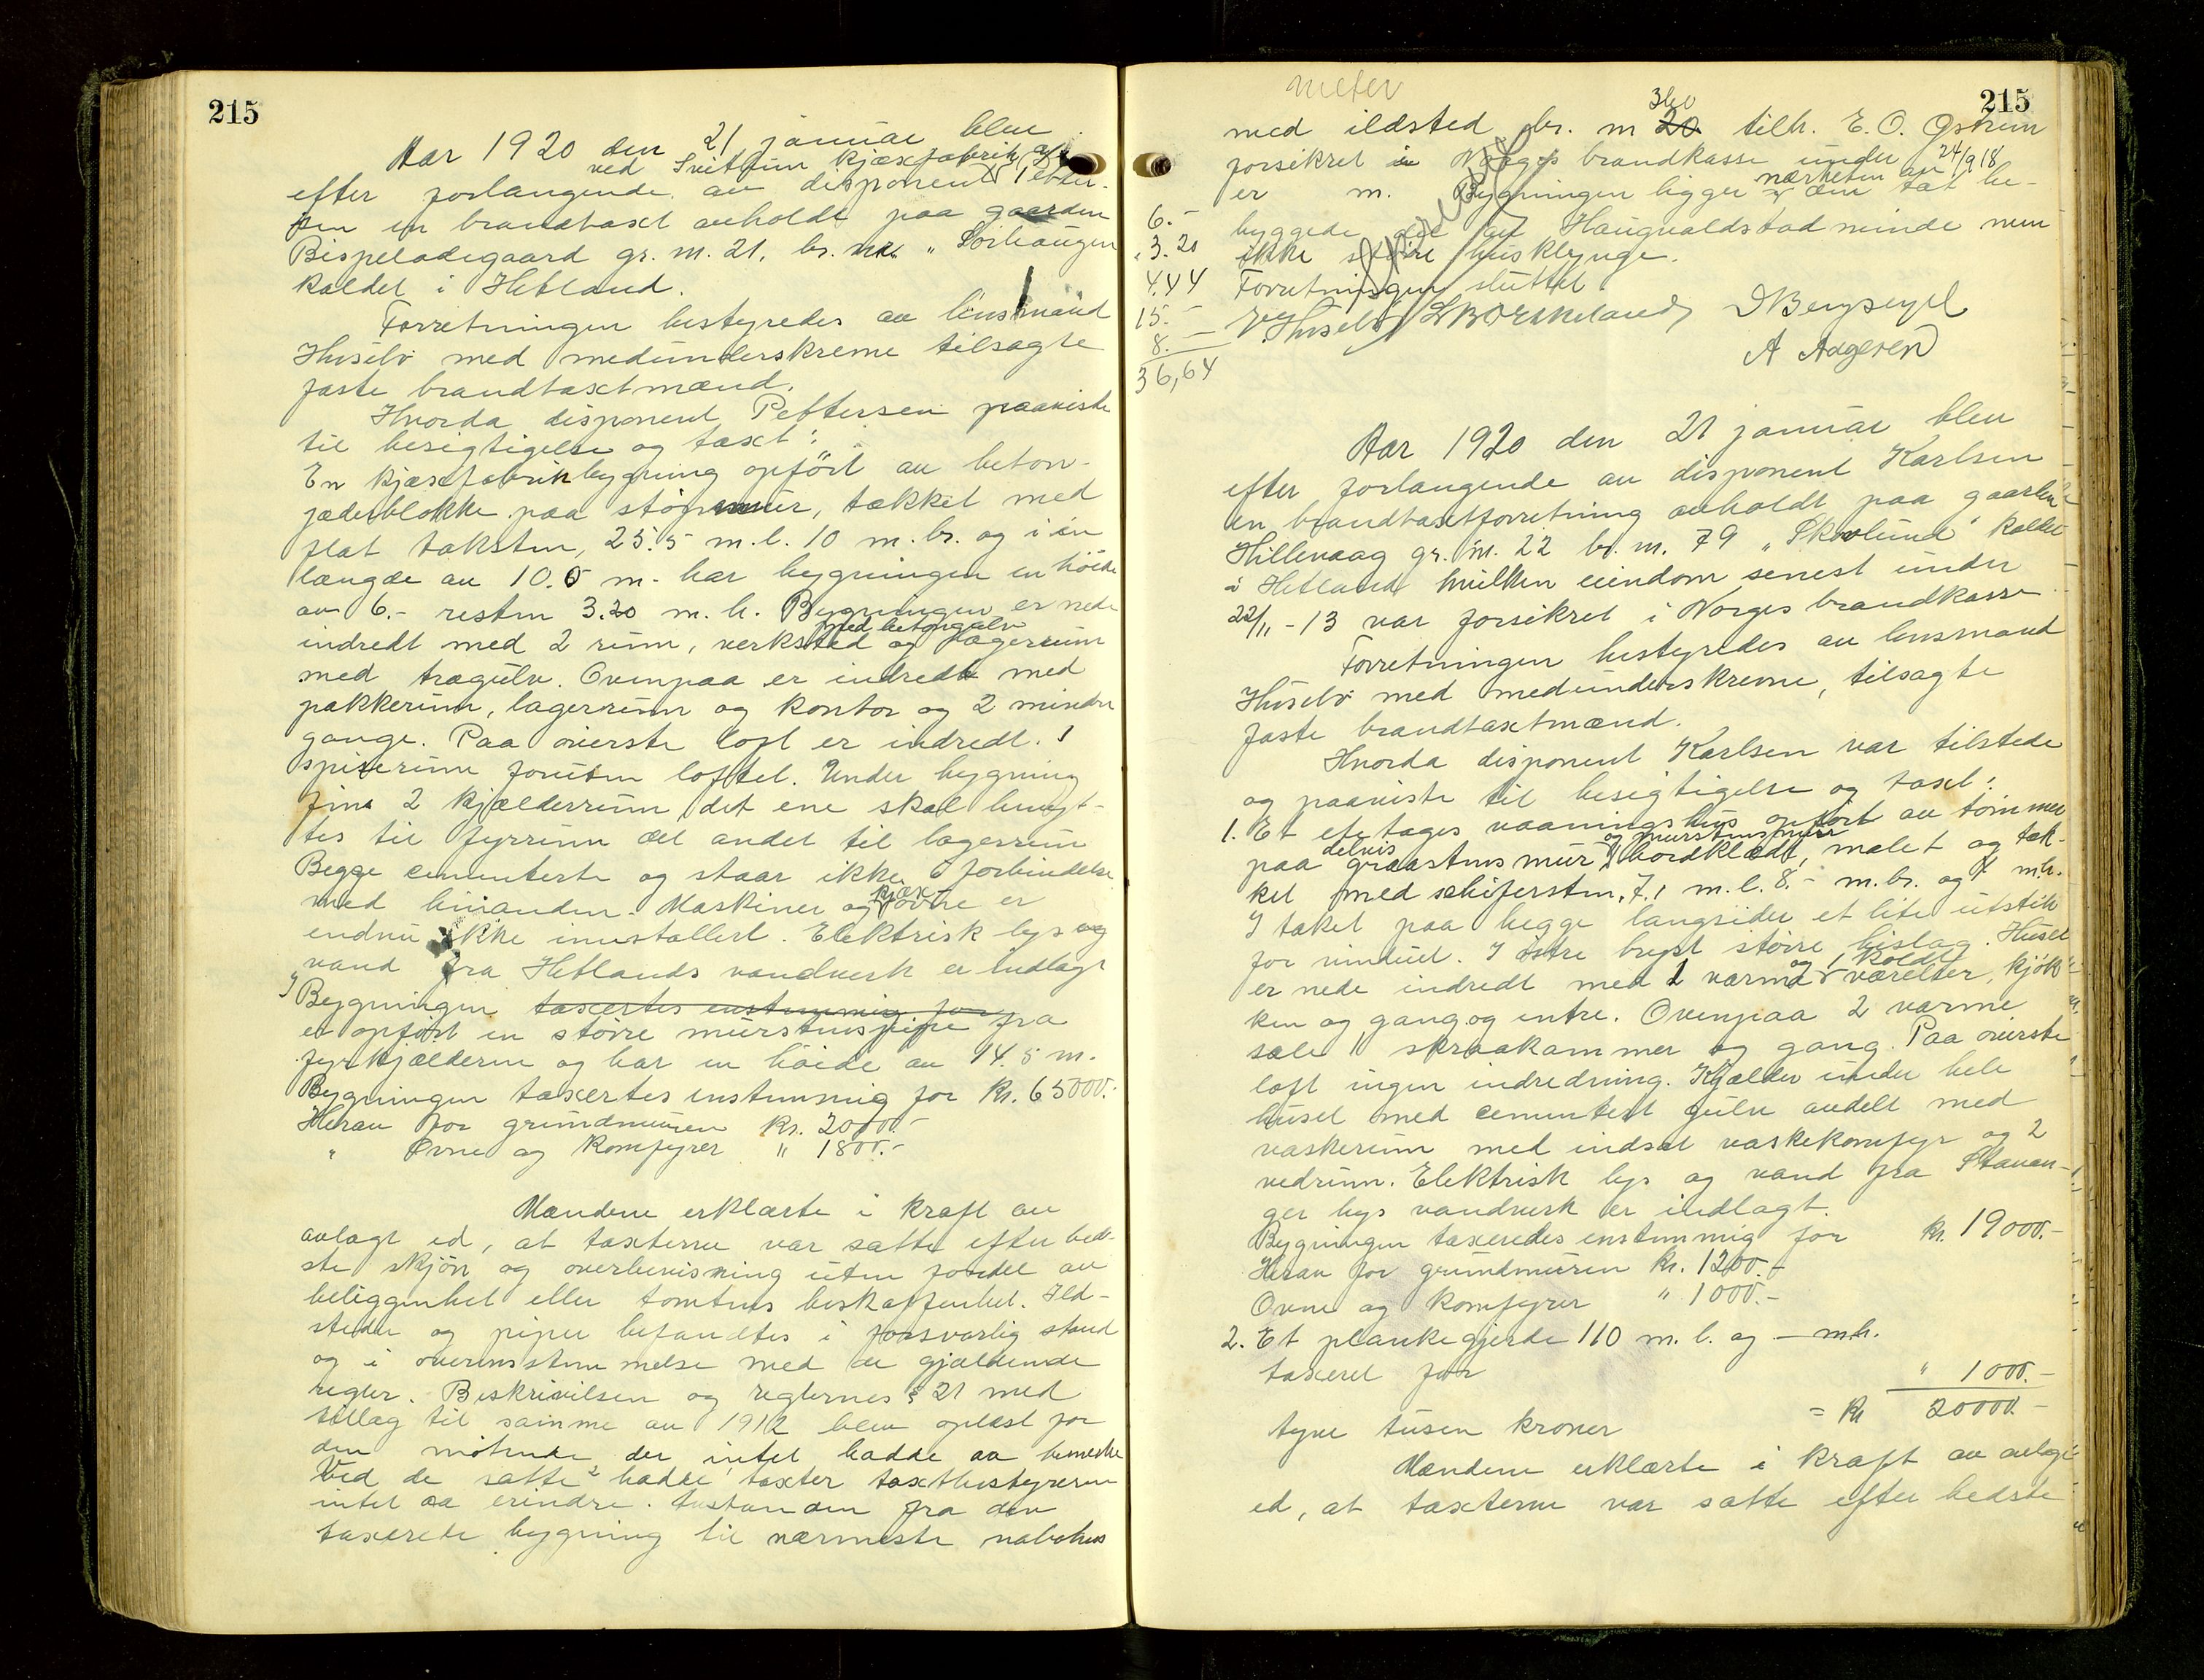 215
Aar 1920 den 21 januar blev
ved Svithun kjæxfabrik a/s
efter forlangende av disponent Petter-
sen en brandtaxt avholdt paa gaarden
Bispeladegaard gr. nr. 21, br. nr. "Solhaugen
kaldet i Hetland.
Forretningen bestyredes av lensmand
Husebø med medunderskrevne tilsagte
faste brandtaxtmænd.
Hvorda disponent Pettersen paaviste
til besigtigelse og taxt:
En kjæxfabrikbygning opført av beton-
jæderblokke paa støpemur, tækket med
flat taksten, 25.5 m.l. 10 m. br. og i en
længde av 10.5 m. har bygningen en høide
av 6.- resten 3.20 m. h. Bygningen er nede
med betongulv
indredt med 2 rum, verksted og lagerrum
med trægulv. Ovenpaa er indredt med
pakkerum, lagerrum og kontor og 2 mindre
gange. Paa øverste loft er indredt 1
spiserum foruten loftet. Under bygning
fins 2 kjælderrum det ene skal benyt-
tes til fyrrum det andet til lagerrum
Begge cementerte og staar ikke i forbindelse
kjæx-
med hinanden. Maskiner og ovne er
endnu ikke innstallert. Elektrisk lys og
vand fra Hetlands vandverk er indlagt
I Bygningen taxertes enstemmig for
er opført en større murstenspipe fra
fyrkjælderen og har en høide av 14.5 m.
Bygningen taxertes enstemmig for Kr. 65000.-
Herav for grundmuren Kr. 2000.-
" Ovne og komfyrer " 1800.-
Mændene erklærte i kraft av
avlagt ed, at taxterne var satte efter bed-
ste skjøn og overbevisning uten fordel av
beliggenhet eller tomtens beskaffenhet. Ild-
steder og piper befandtes i forsvarlig stand
og i overensstemmelse med de gjældende
regler. Beskrivelsen og reglernes § 21 med
tillæg til samme av 1912 blev oplæst for
den møtende der intet hadde aa bemerke
Ved de satte taxter hadde taxtbestyreren
intet aa erindre. Avstanden fra den
taxerede bygning til nærmeste nabohus
215
meter
360
med ildsted br. nr 20 tilh. E. O. Østrem
forsikret i Norges brandkasse under 24/9 18
nærheten av
er m. Bygningen ligger i den tæt be-
6.-
byggede del av Haugvaldstadminde men
3.20
ikke større husklynge.
4.44
Forretningen sluttet
15.-
Husebø L Bærheland I Bergseyel
8.-
A Aageren
36,64
Aar 1920 den 21 januar blev
efter forlangende av disponent Karlsen
en brandtaxtforretning avholdt paa gaarden
Hillevaag gr. nr. 22 br. nr. 79 "Skovlund" kaldet
i Hetland hvilken eiendom senest under
22/11-13 var forsikret i Norges brandkasse
Forretningen bestyredes av lensmand
Husebø med medunderskrevne, tilsagte
faste brandtaxtmænd.
Hvorda disponent Karlsen var tilstede
og paaviste til besigtigelse og taxt:
1. Et etetages vaaningshus opført av tømmer
delvis og murstensmur
paa graastensmur bordklædt, malet og tæk-
ket med schifersten, 7.1 m.l. 8.- m.br. og 7 m.h.
I taket paa begge langsider et lite utstik
for vinduet. I østre bryst større bislag. Huset
og 1 koldt
er nede indredt med 2 varme værelser, kjøk-
ken og gang og entre. Ovenpaa 2 varme
sale 1 skraakammer og gang. Paa øverste
loft ingen indredning. Kjælder under hele
huset med cementert gulv avdelt med
vaskerum med indsat vaskekomfyr og 2
vedrum. Elektrisk lys og vand fra Stavan-
ger bys vandverk er indlagt.
Bygningen taxeredes enstemmig for kr. 19000.-
Herav for grundmuren Kr. 1200.-
Ovne og komfyrer " 1000.-
2. Et plankegjerde 110 m.l. og — m.h.
taxeret for " 1000.-
= Kr 20000.-
tyve tusen kroner
Mændene erklærte i kraft av avlagt
ed, at taxterne var satte efter bedste